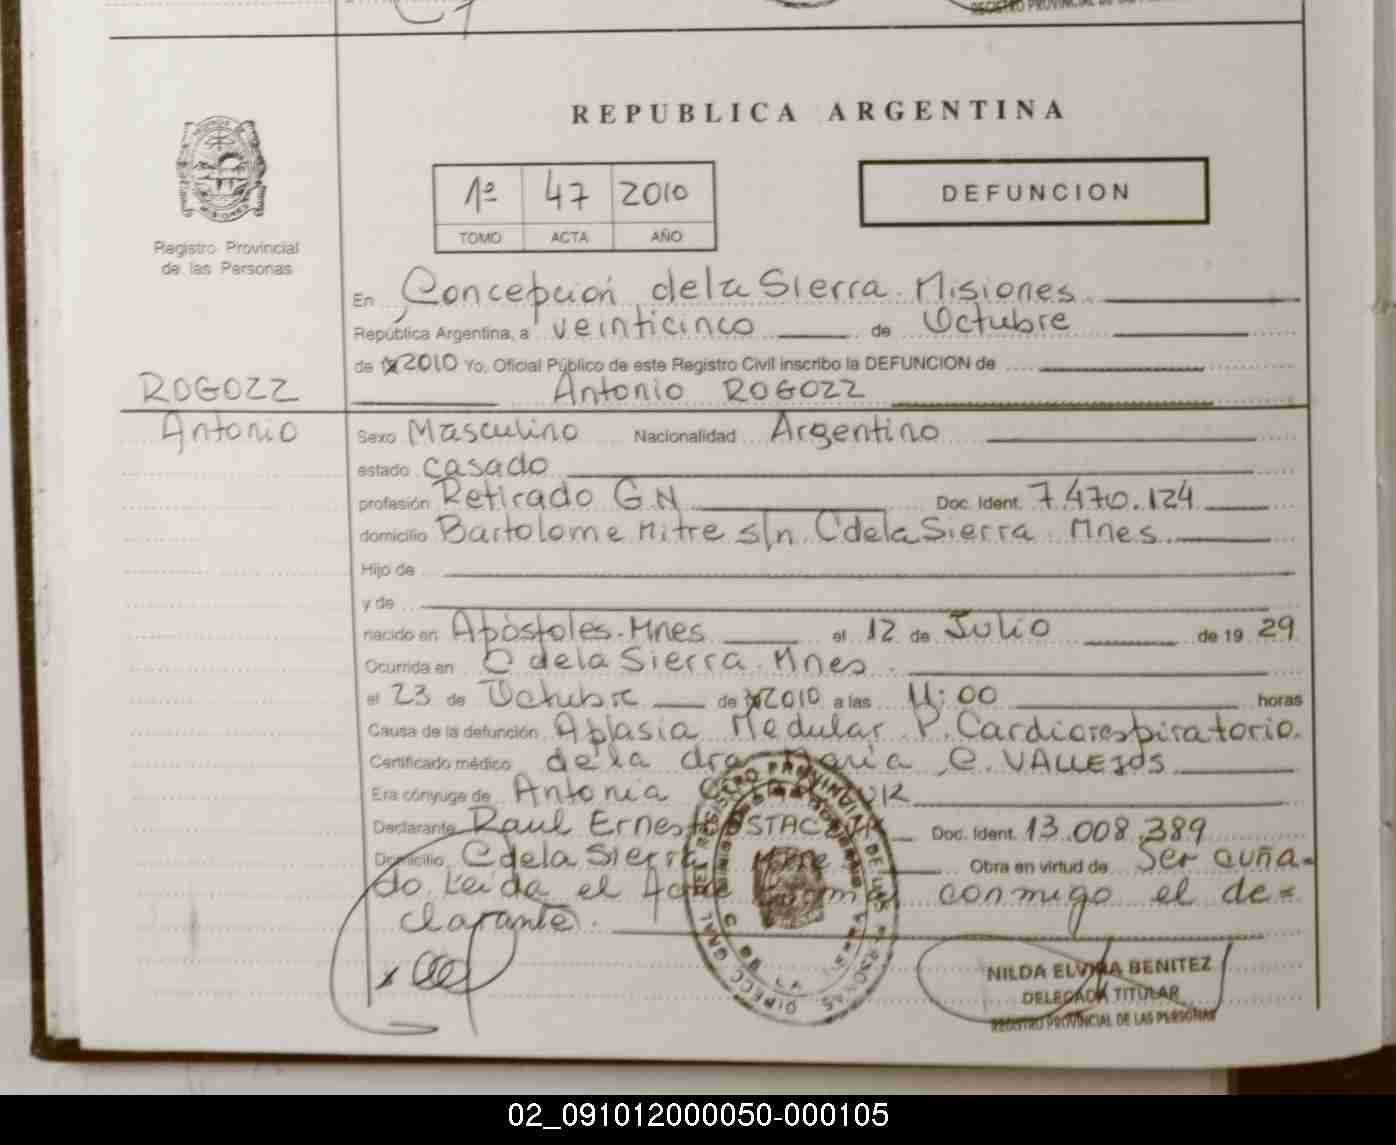 REPUBLICA ARGENTINA
1º 47 2010
TOMO ACTA AÑO
DEFUNCION
Registro Provincial
de las Personas
En Concepción de la Sierra. Misiones
República Argentina, a veinticinco de Octubre
de 2010 Yo, Oficial Público de este Registro Civil inscribo la DEFUNCION de
ROGOZZ
Antonio
Antonio ROGOZZ
Sexo Masculino Nacionalidad Argentino
estado casado
profesión Retirado G.N Doc. Ident. 7.470.124
domicilio Bartolome Mitre s/n. C de la Sierra. Mnes.
Hijo de
y de
nacido en Apóstoles. Mnes el 12 de Julio de 19 29
Ocurrida en C de la Sierra. Mnes.
el 23 de Octubre de 2010 a las 11:00 horas
Causa de la defunción Aplasia Medular. P. Cardiorespiratorio.
Certificado médico de la dra María C. VALLEJOS
Era cónyuge de Antonia
Declarante Raul Ernesto Doc. Ident. 13.008.389
Domicilio C de la Sierra Mnes Obra en virtud de Ser cuña=
do. Leída el Acta conmigo el de=
clarante.
NILDA ELVIRA BENITEZ
DELEGADA TITULAR
REGISTRO PROVINCIAL DE LAS PERSONAS
02_091012000050-000105